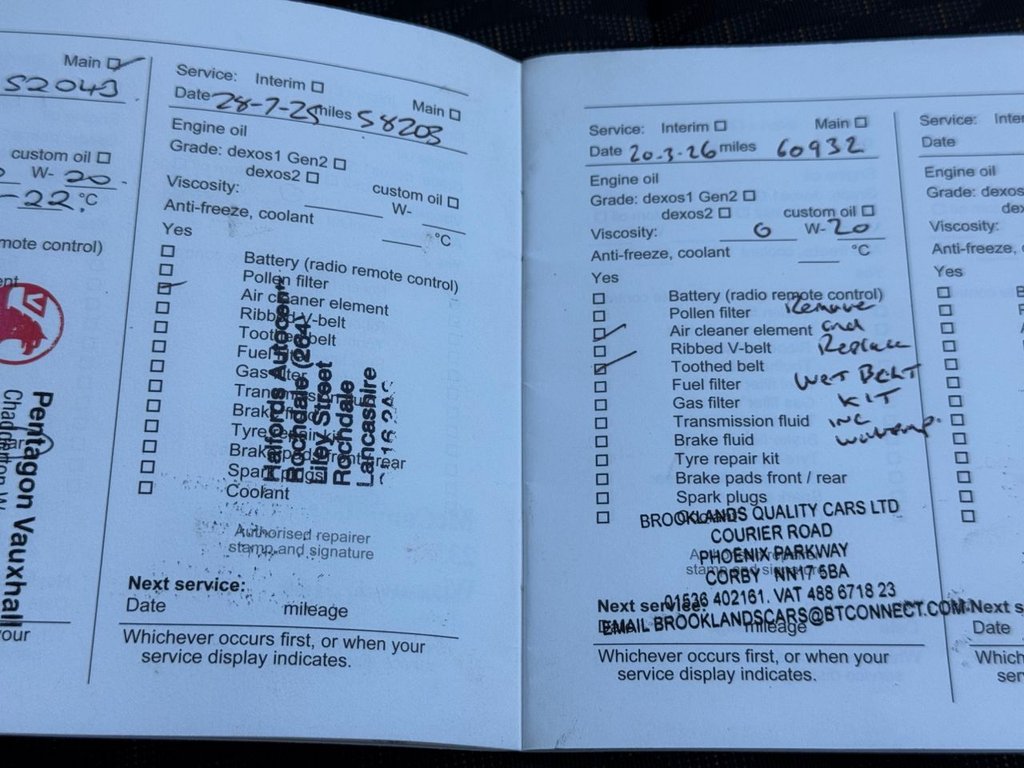 Main
52043
custom oil
W- 20
-22 °C
mote control)
Pentagon Vauxhall
Service: Interim Main
Date 28-7-25 miles 58203
Engine oil
Grade: dexos1 Gen2
dexos2 custom oil
Viscosity: W-
Anti-freeze, coolant °C
Yes
Battery (radio remote control)
Pollen filter
Air cleaner element
Ribbed V-belt
Toothed belt
Fuel filter
Gas filter
Transmission fluid
Brake fluid
Tyre repair kit
Brake pads front / rear
Spark plugs
Coolant
Halfords Autocentre
Rochdale (204)
Lilley Street
Rochdale
Lancashire
Authorised repairer
stamp and signature
Next service:
Date mileage
Whichever occurs first, or when your
service display indicates.
Service: Interim Main
Date 20-3-26 miles 60932
Engine oil
Grade: dexos1 Gen2
dexos2 custom oil
Viscosity: 0 W-20
Anti-freeze, coolant °C
Yes
Battery (radio remote control)
Pollen filter Remove
Air cleaner element and
Ribbed V-belt Replace
Toothed belt
Fuel filter WET BELT
Gas filter KIT
Transmission fluid inc
Brake fluid
Tyre repair kit
Brake pads front / rear
Spark plugs
BROOKLANDS QUALITY CARS LTD
COURIER ROAD
PHOENIX PARKWAY
CORBY NN17 5BA
01536 402161. VAT 488 6718 23
EMAIL BROOKLANDSCARS@BTCONNECT.COM
Next service:
mileage
Whichever occurs first, or when your
service display indicates.
Service:
Date
Engine oil
Grade:
Viscosity:
Anti-freeze
Yes
Next s
Date